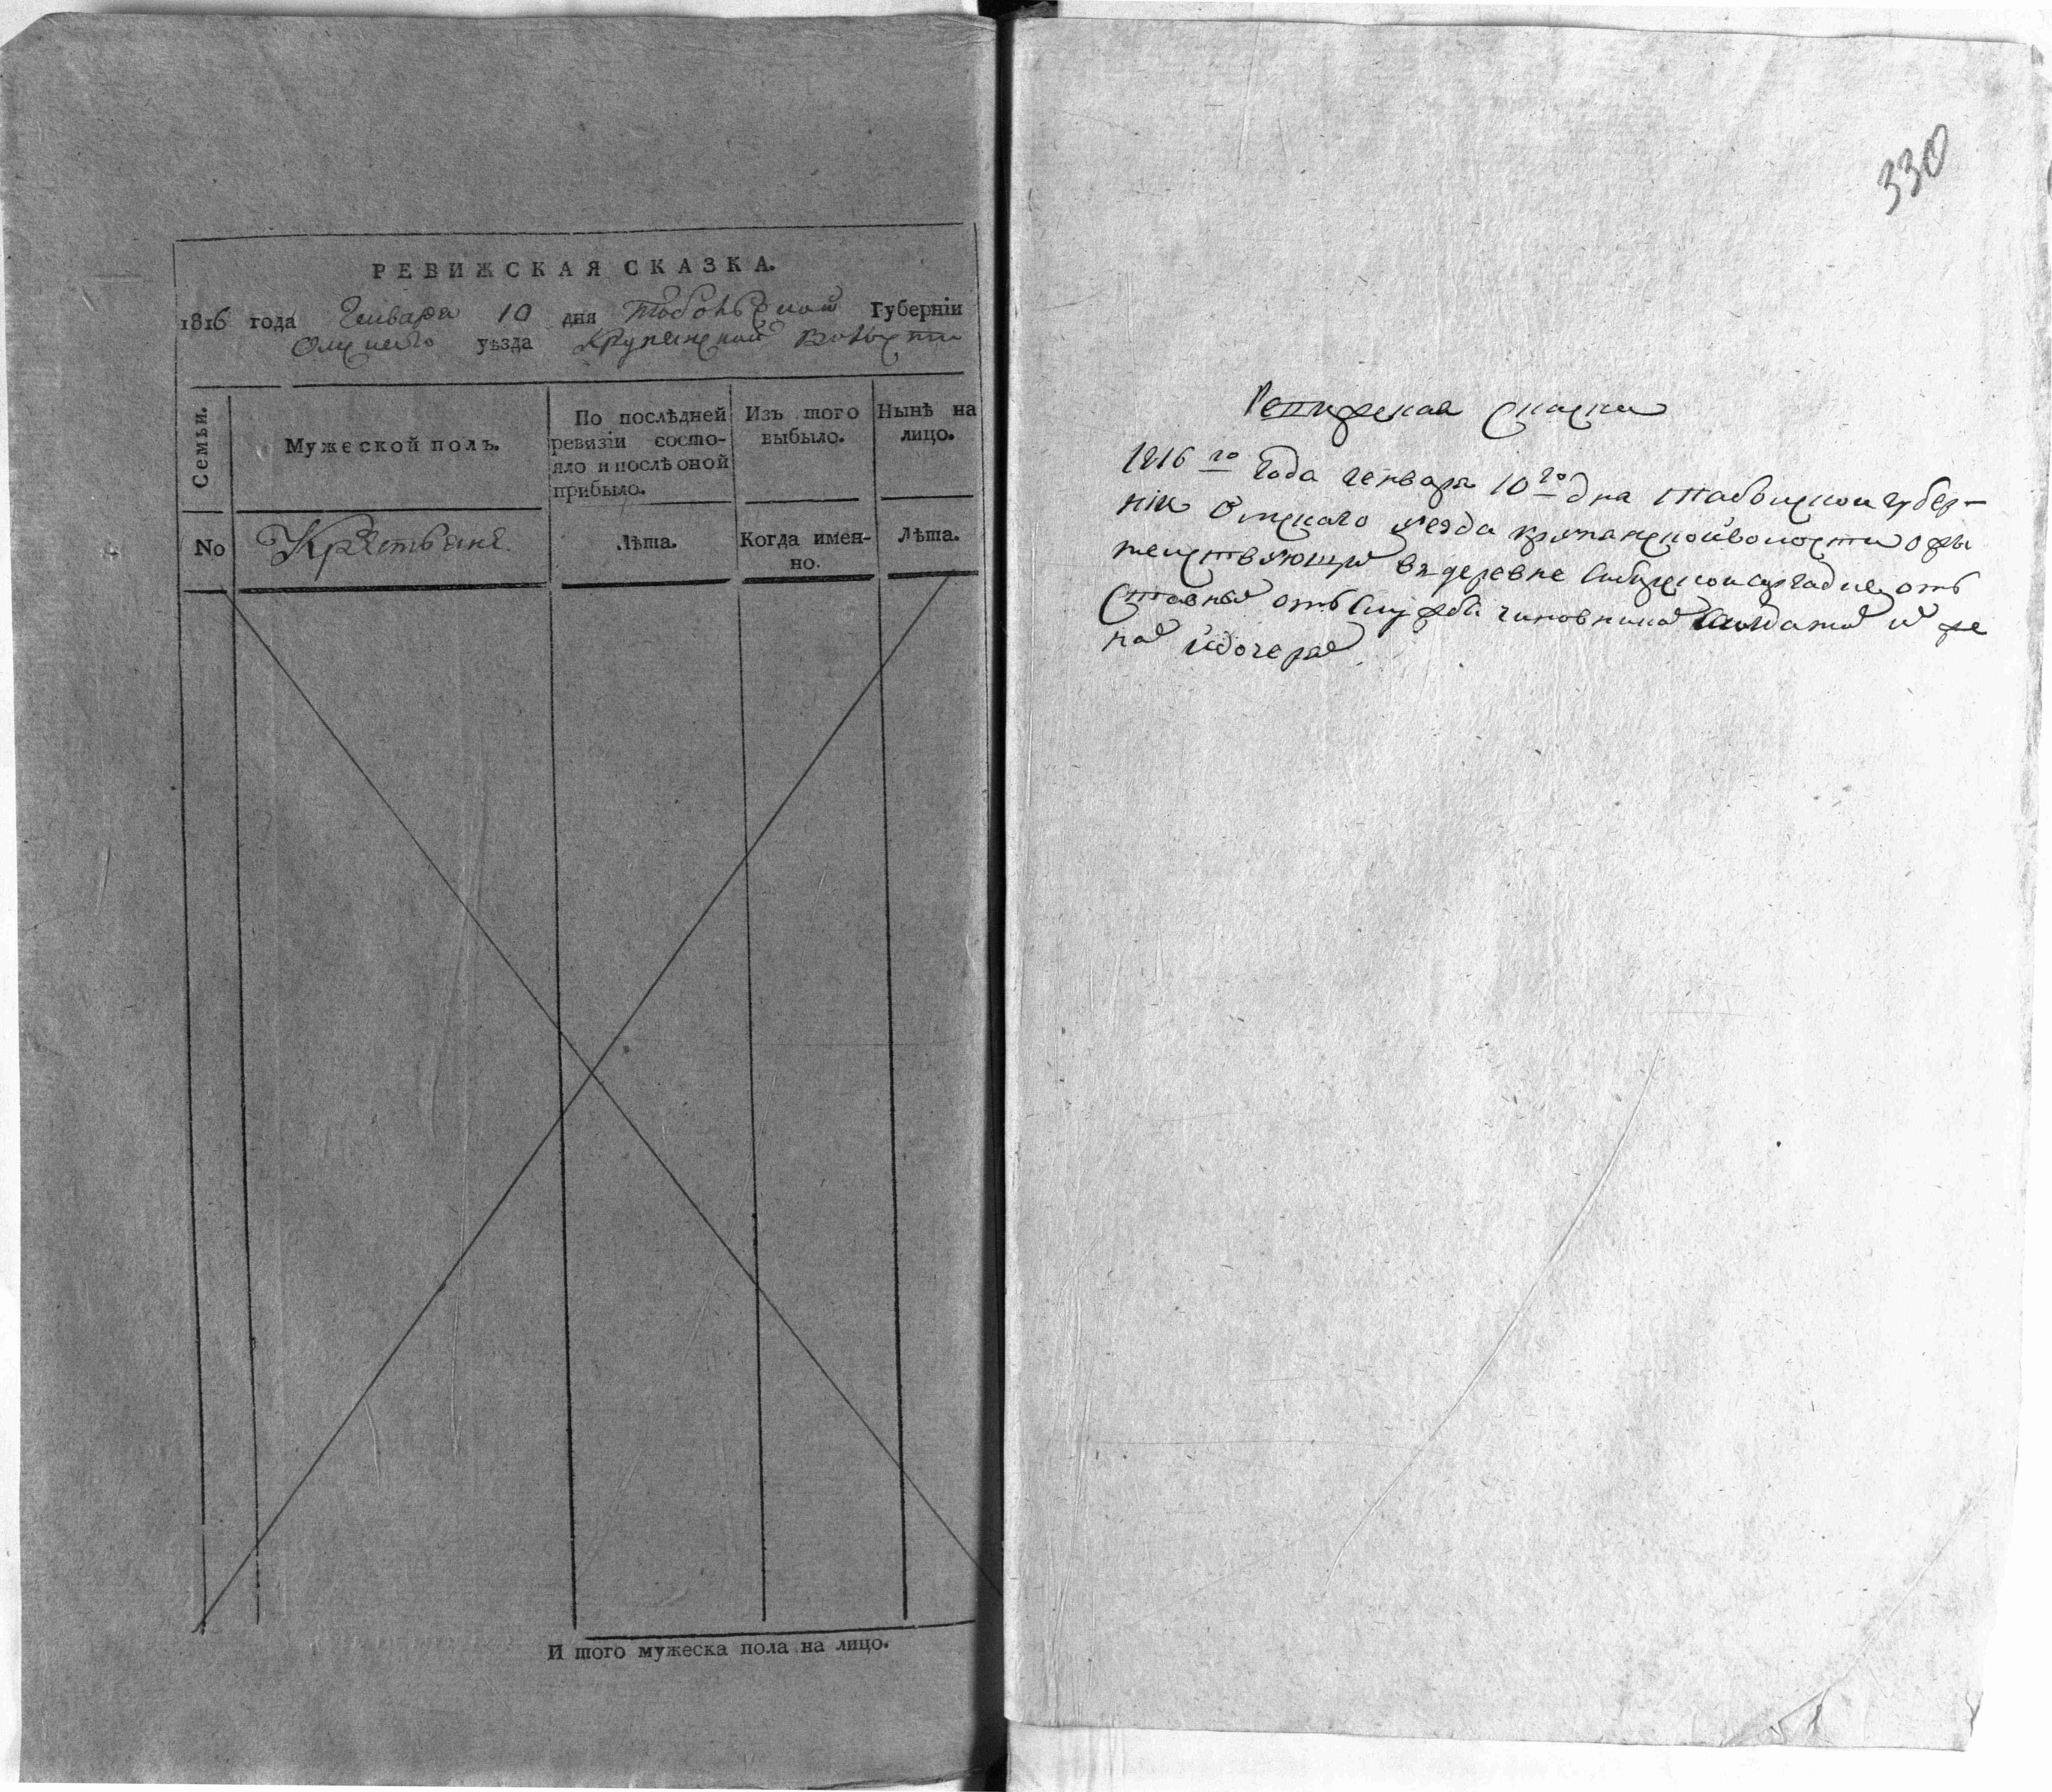 РЕВИЖСКАЯ СКАЗКА.
1816 года Генваря 10 дня Тобольской Губерніи
Омскаго уѣзда Крупянской Волости
Семьи.
Мужеской полъ.
По послѣдней
ревизіи состо-
яло и послѣ оной
прибыло.
Изъ того
выбыло.
Нынѣ на
лицо.
No
Крестьяне
Лѣта.
Когда имен-
но.
Лѣта.
И того мужеска пола на лицо.
330
Ревижская скаска
1816го года генваря 10го дня Таболской губер-
ніи Омскаго уезда крупянской волости о жи
телствующи въ деревне отъ
ставны отъ службы чиновника солдата и же
на и дочеря